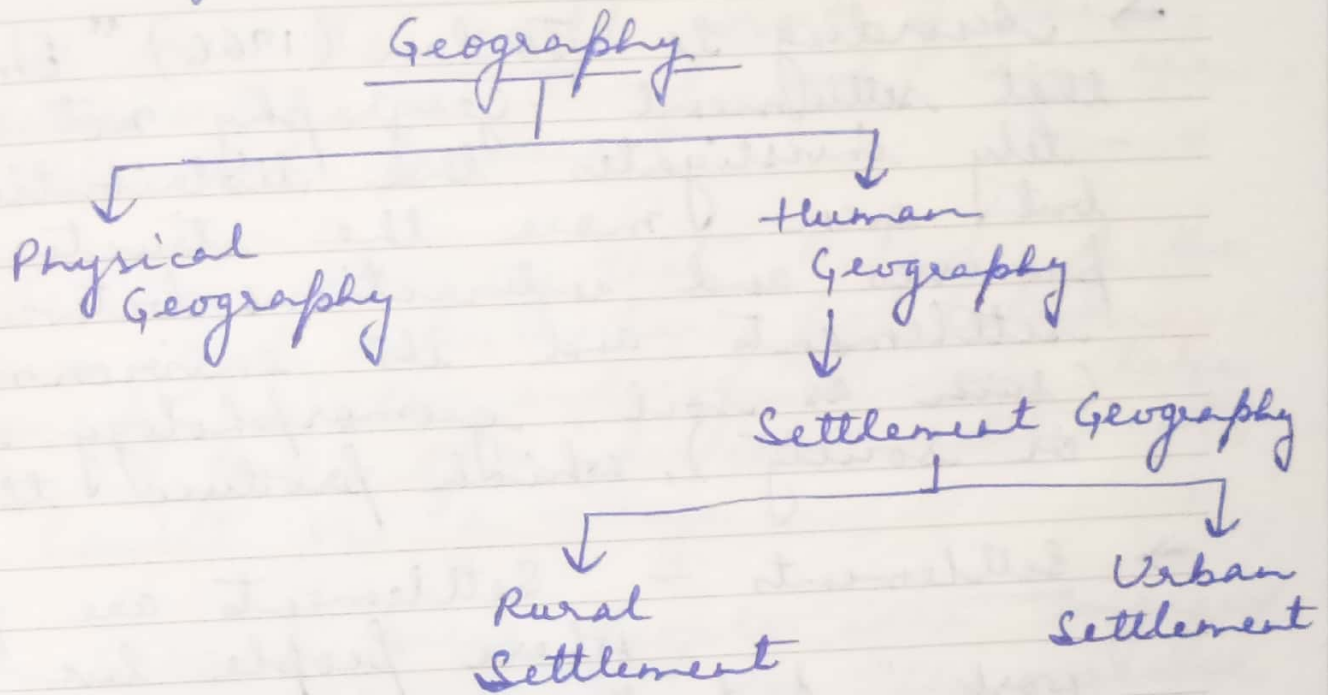 Geography
Physical
Geography
Human
Geography
Settlement Geography
Rural
Settlement
Urban
Settlement